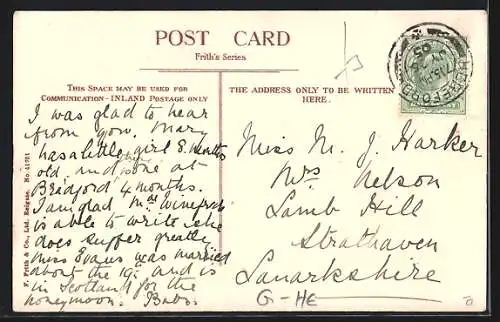 POST CARD
Frith's Series
THIS SPACE MAY BE USED FOR
COMMUNICATION - INLAND POSTAGE ONLY
THE ADDRESS ONLY TO BE WRITTEN
HERE.
I was glad to hear
from you. Mary
has a little girl 8. Months
old. and one at
Bradford 4 months.
I am glad Winefred
is able to write she
does suffer greatly
Miss Evans was married
about the 19. and is
in Scotland for the
honeymoon. Babs.
Miss M. J. Harker
Mrs Nelson
Lamb Hill
Strathaven
Lanarkshire
G-HE
F. Frith & Co., Ltd., Reigate.
HEREFORD